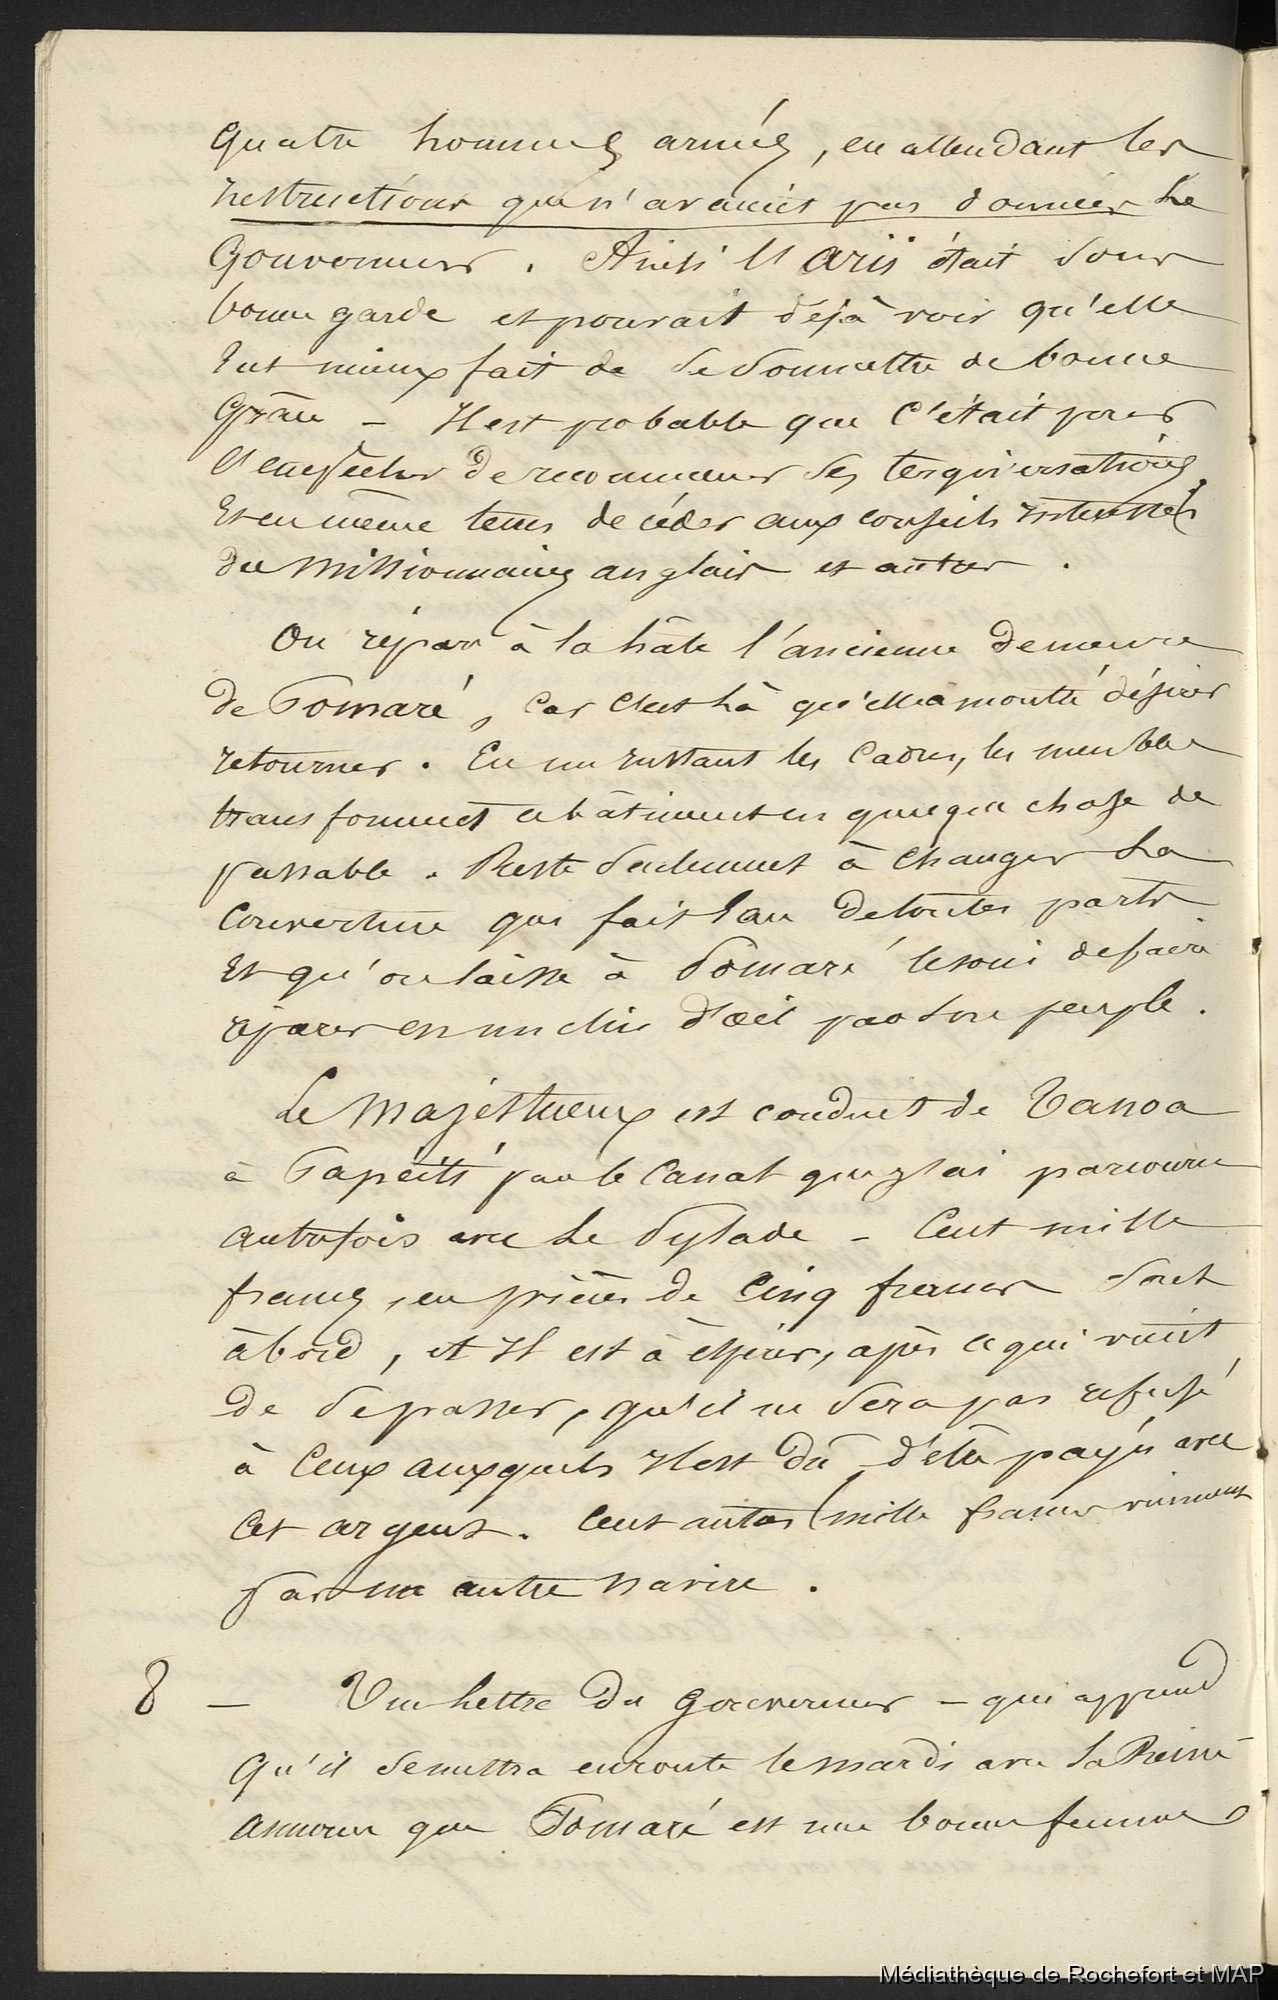 quatre hommes armés, en attendant les
instructions que n'avaient pas données le
Gouverneur. Ainsi l'Arii était sous
bonne garde et pouvait déjà voir qu'elle
eut mieux fait de se soumettre de bonne
Grâce — Il est probable que c'était pour
l'empêcher de recommencer ses tergiversations,
et en même tems de céder aux conseils
des missionnaires anglais et autres.
On répare à la hâte l'ancienne demeure
de Pomaré, car c'est là qu'elle a montré désirer
retourner. En un instant les cadres, les meubles
transforment ce bâtiment en quelque chose de
passable. Reste seulement à changer la
couverture qui fait eau de toutes parts
et qu'on laisse à Pomaré le soin de faire
réparer en un clin d'œil par son peuple.
Le Majestueux est conduit de Tanoa
à Papéiti par le canal que j'ai parcouru
autrefois avec le Pylade — Cent mille
francs, en pièces de cinq francs sont
à bord, et il est à espérer, après ce qui vient
de se passer, qu'il ne sera pas refusé
à ceux auxquels il est dû d'être payés avec
cet argent. Cent autres mille francs viennent
par un autre navire.
8 — Une lettre du Gouverneur — qui apprend
qu'il se mettra en route le mardi avec la Reine
annonce que Pomaré est une bonne femme